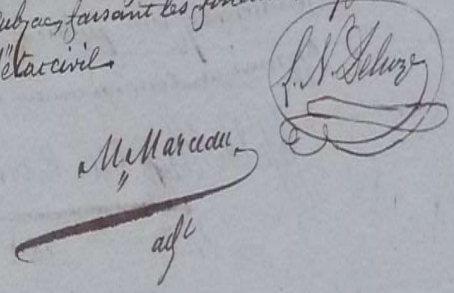 faisant les
d'état civil.
f. N. Deluze
M Marceau
adj